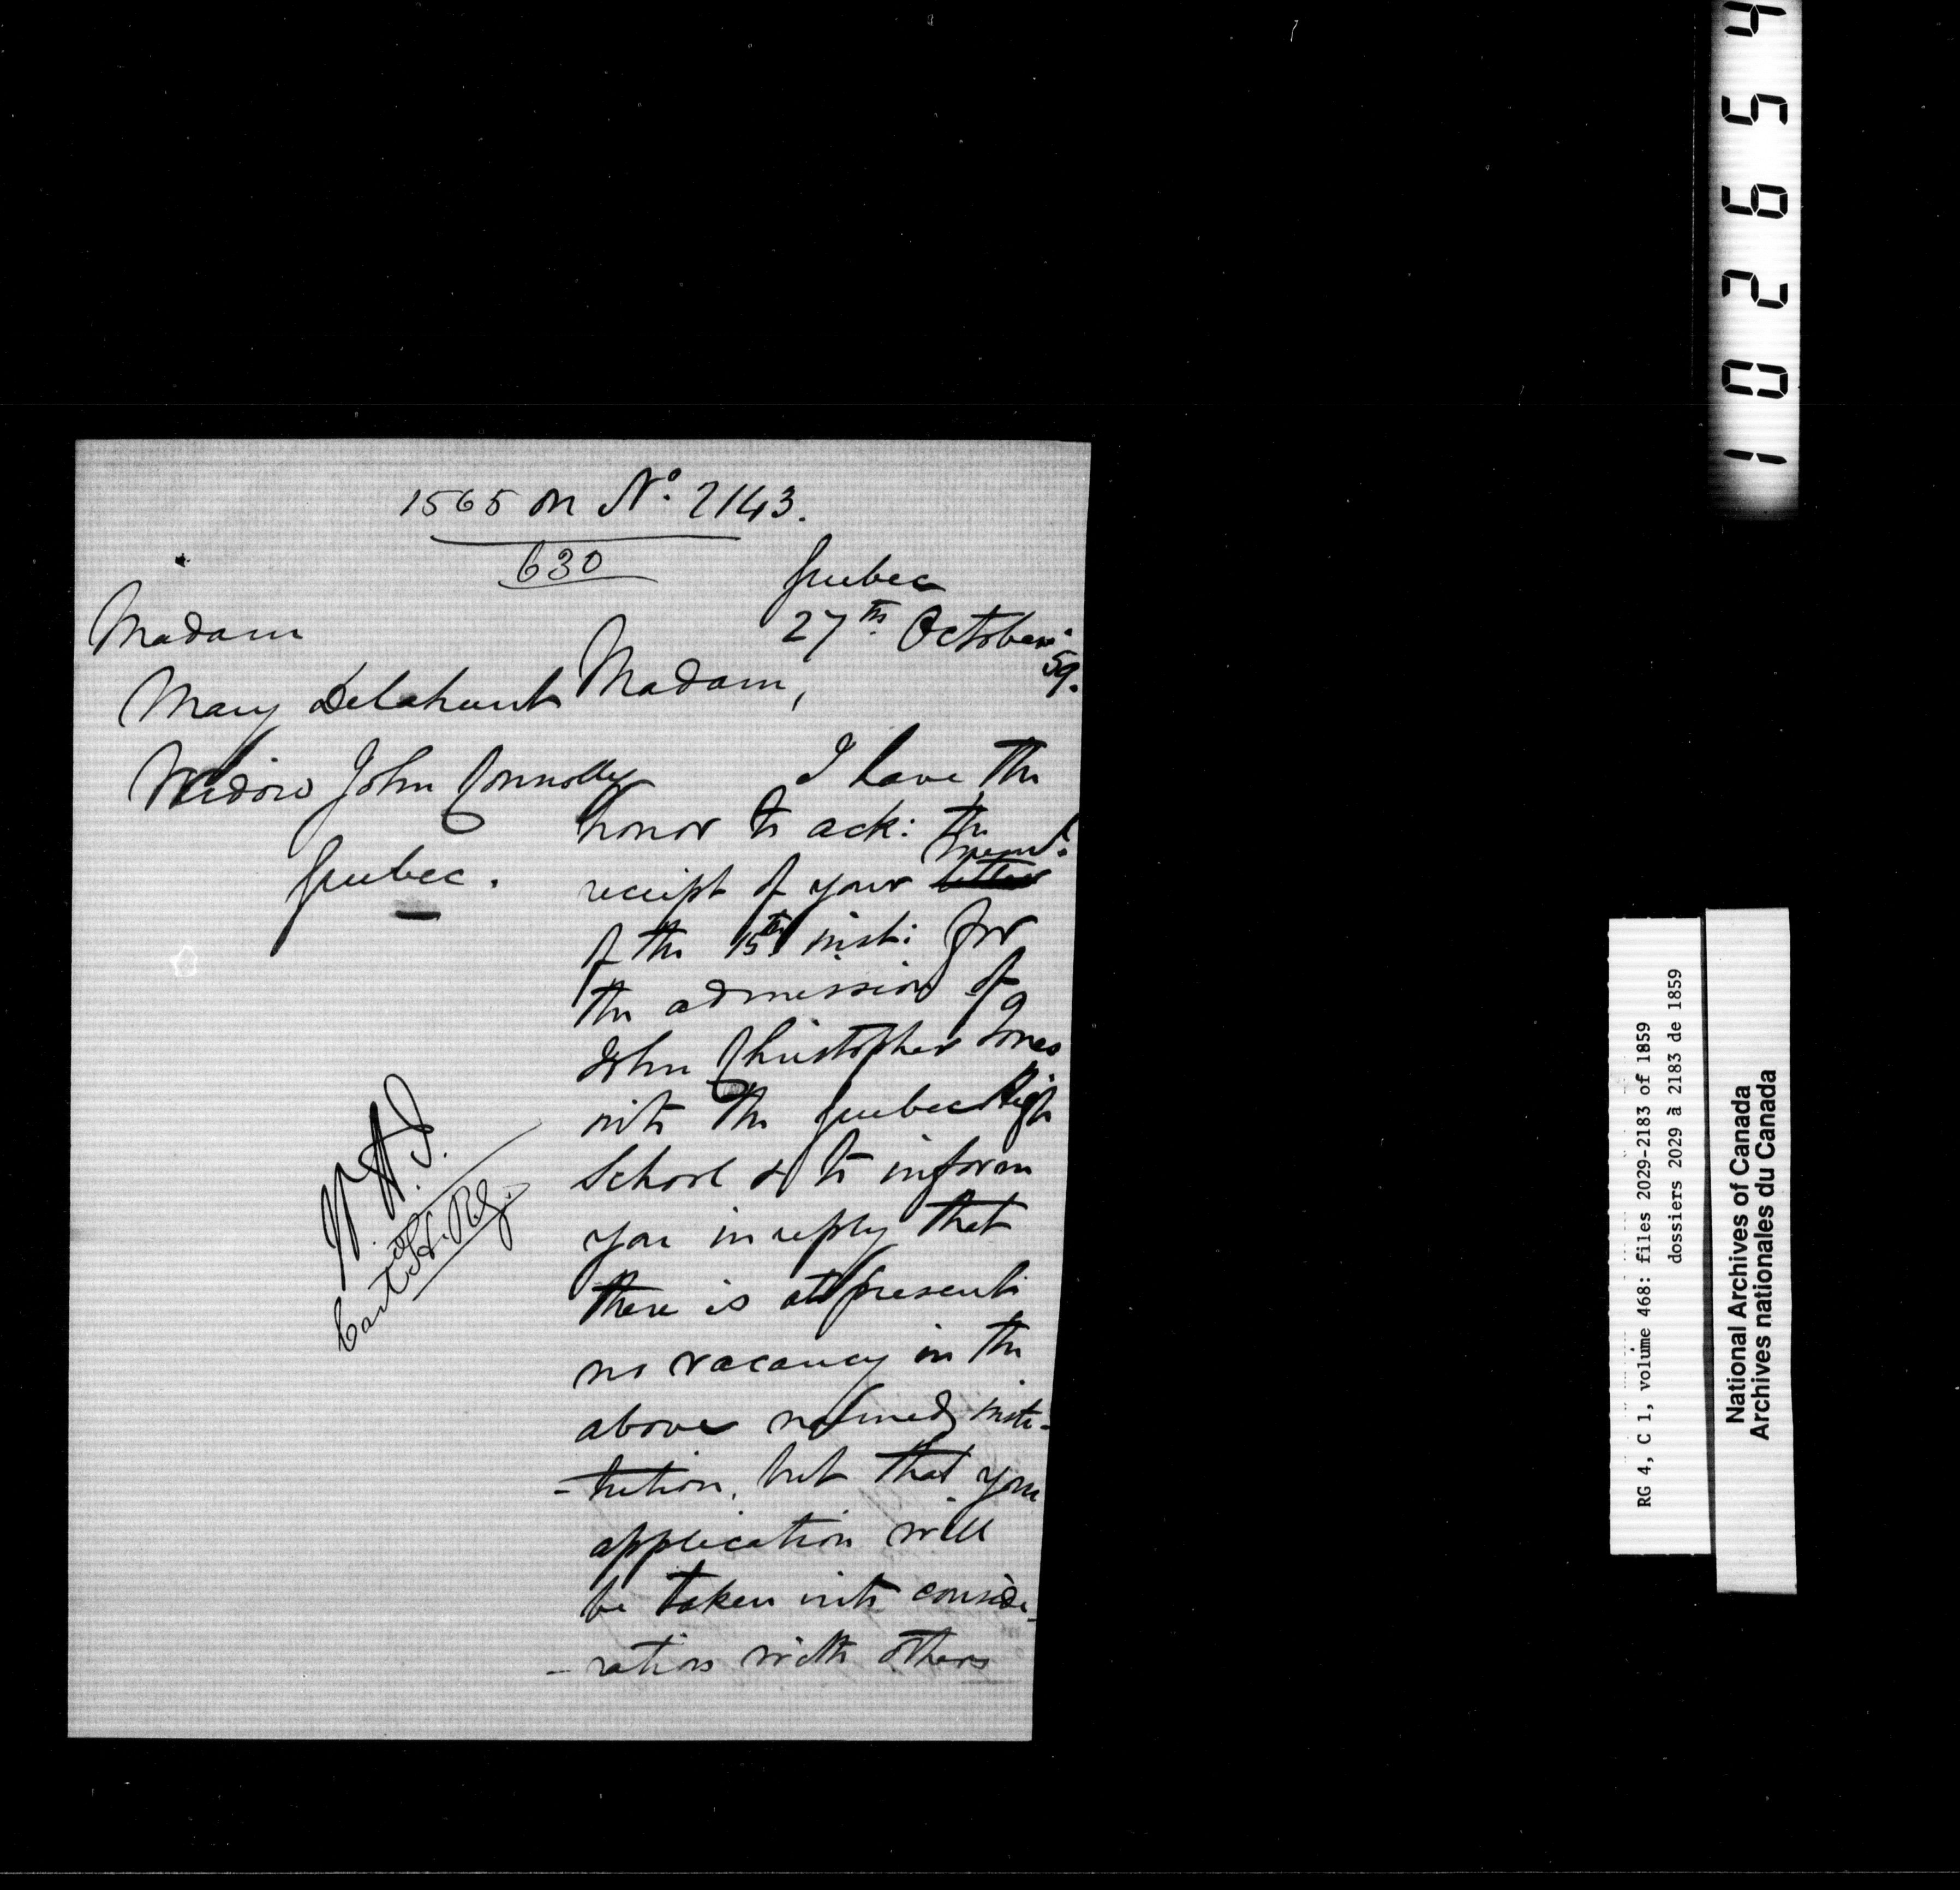 1565 on No. 2143.
630
Quebec
27th October
59.
Madam
Mary Delahunt
Widow John Connolly
Quebec.
Madam,
I have the
honor to ack: the
receipt of your letter meml.
of the 15th inst: for
the admission of
John Christopher Jones
into the Quebec High
School & to inform
you in reply that
there is at present
no vacancy in the
above named insti-
-tution, but that your
application will
be taken into conside-
-ration with others
Ent. H. Rg.
102654
RG 4, C 1, volume 468: files 2029-2183 of 1859
dossiers 2029 à 2183 de 1859
National Archives of Canada
Archives nationales du Canada